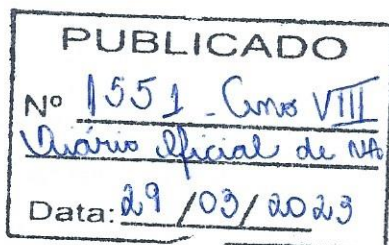 PUBLICADO
Nº 1551 - Ano VIII
Diário Oficial de NA
Data: 29 / 03 / 2023